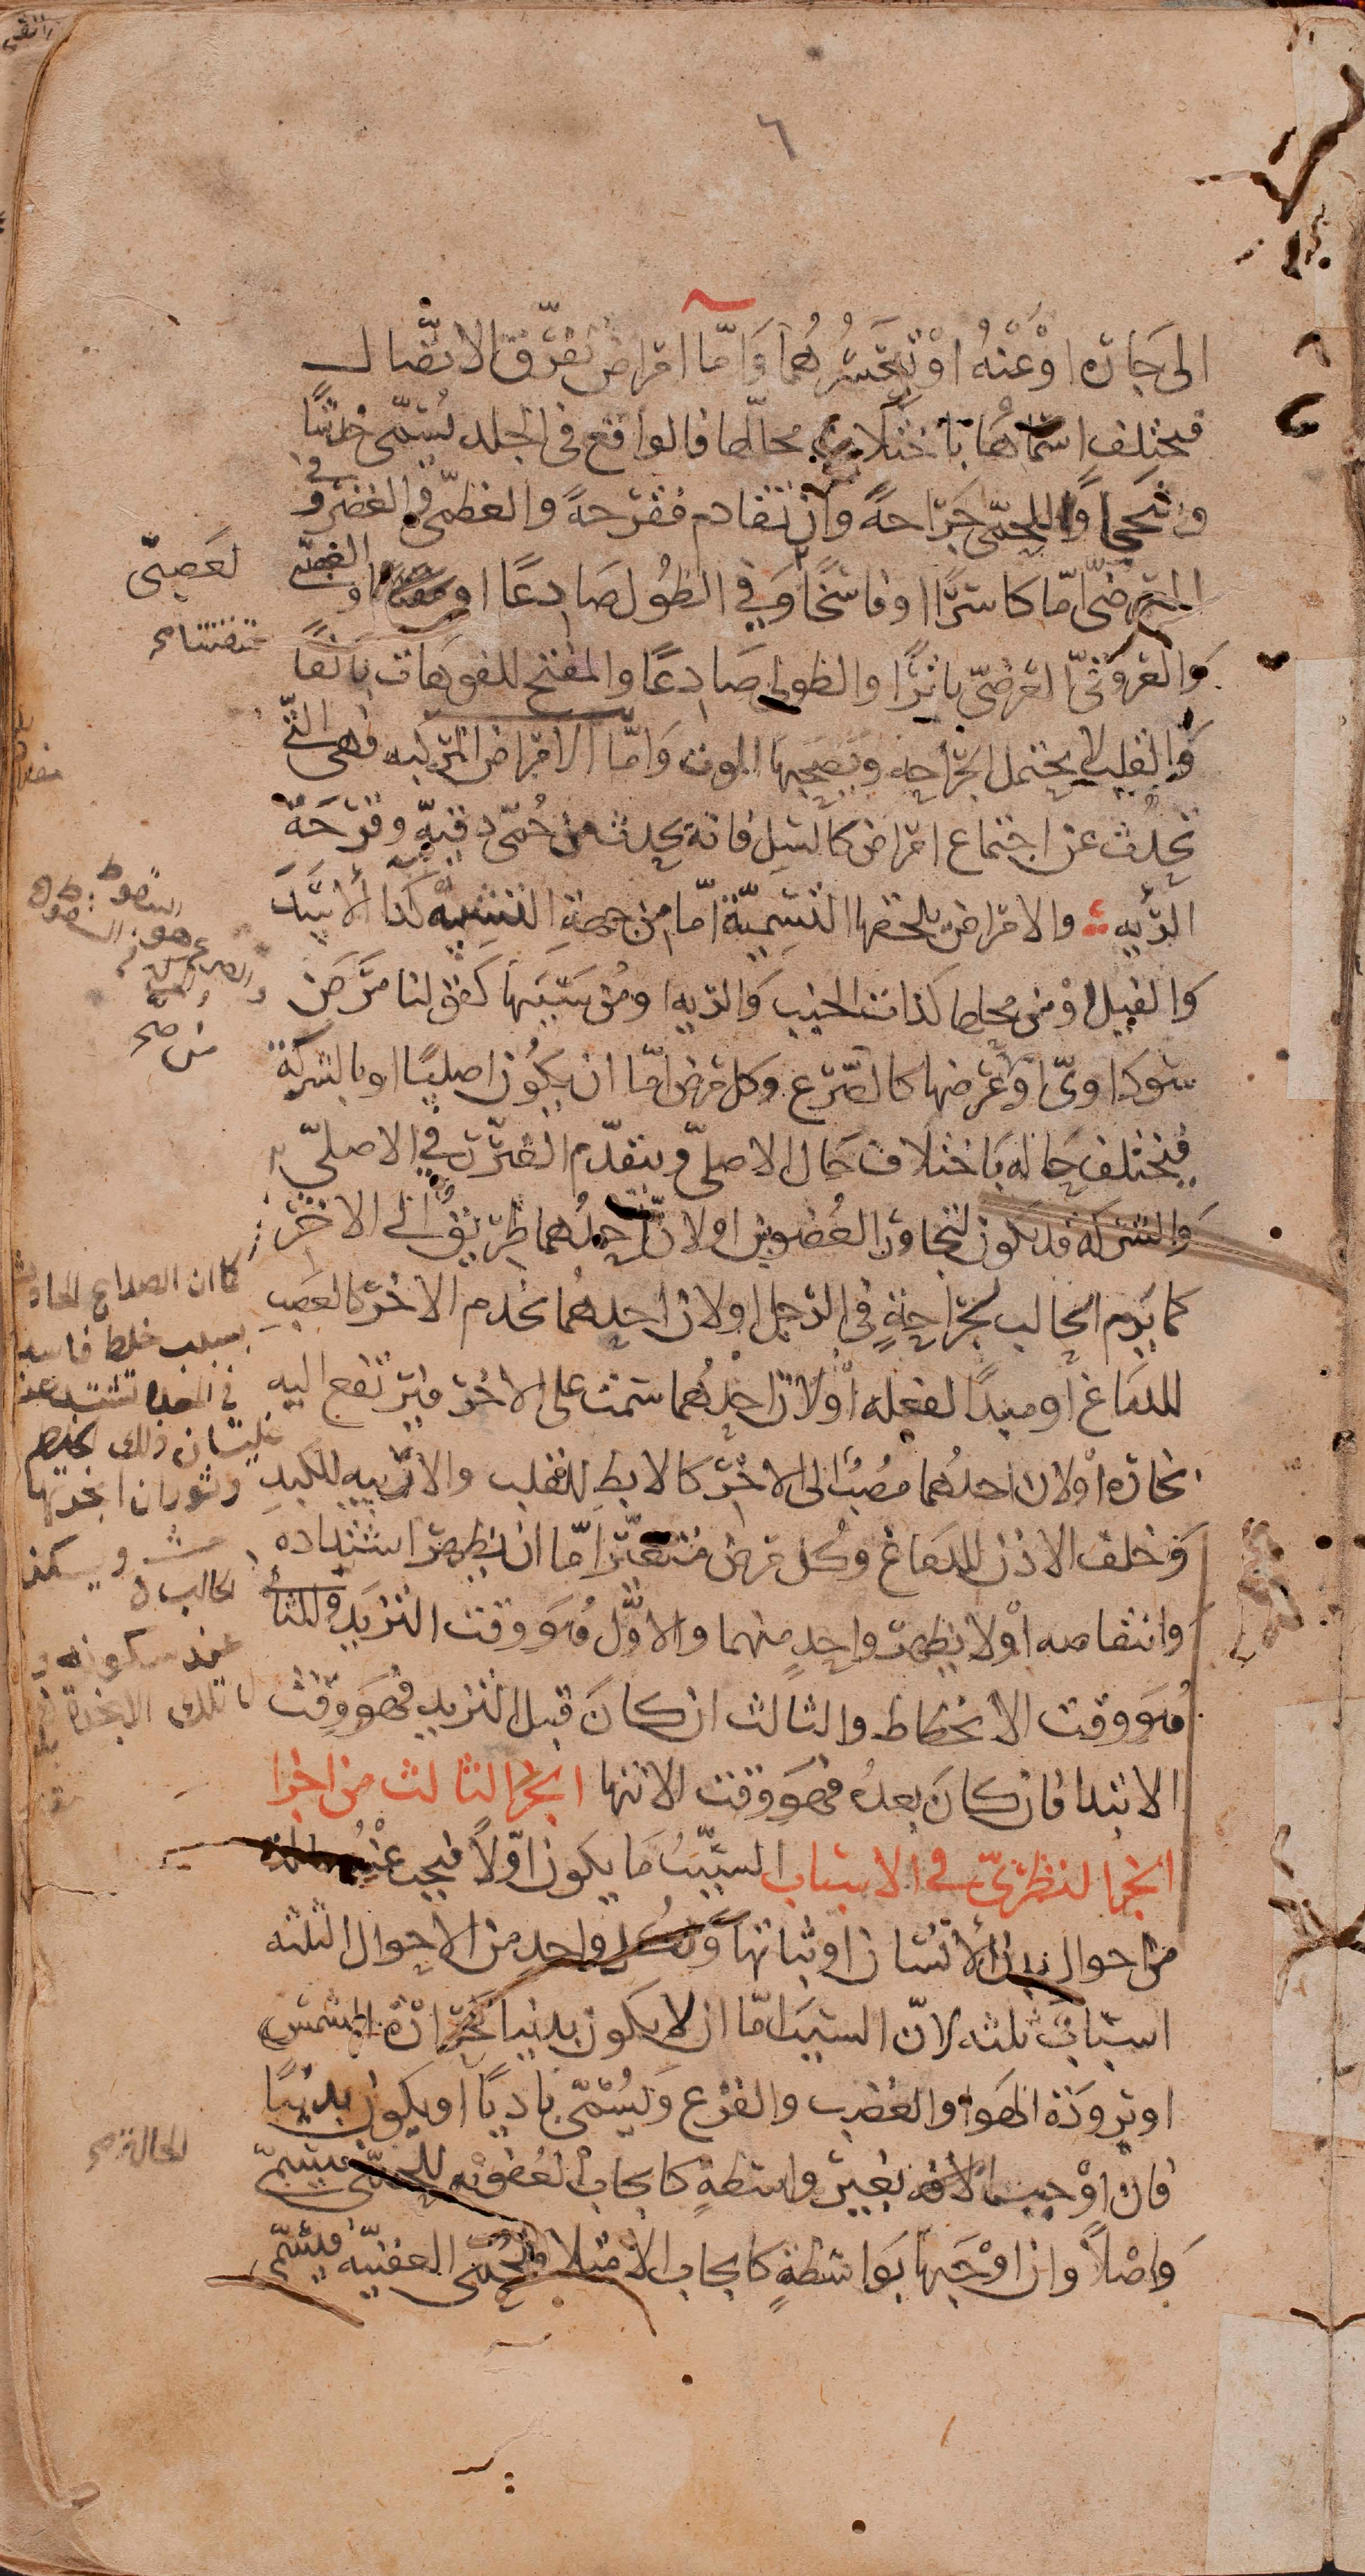 ٦
الى جاره او عنه او تحسرهما واما امراض تفرق الاتصال
فيختلف اسماوها باختلاف محالها فالواقع فى الجلد يسمى خدشا
وسحجا واللحمى جراحة وان تقادم فقرحة والعظمى فى الغضرو
فى
العرضى اما كاسرا او فاسخا وفى الطول صادعا او
لعصبى
والعروقى العرضى باترا والطولى صادعا والمفتح للفوهات باثقا
والقلب لا يحتمل الجراحه ويصحبها الموت واما الامراض المركبه فهى التى
تحدث عن اجتماع امراض كالسل فانه يحدث من حمى دقيه وقرحة
الريه والامراض يلحقها التسمية اما من جهة التشبيه كدا الاسد
والفيل او من محلها كذات الجنب والريه او من سببها كقولنا مرض
سوداوى او عرضها كالصرع وكل مرض اما ان يكون اصليا او بالشركة
فيختلف حاله باختلاف حال الاصلى ويتقدم الضرر فى الاصلى
والشركة قد يكون لتجاور العضوين او لان احدهما طريق الى الاخر
كما يرم الحالب لجراحة فى الرجل او لان احدهما يخدم الاخر كالعصب
للدماغ او مبدأ لفعله او لان احدهما سمت على الاخر فيرتفع اليه
بخاره او لان احدهما مصب الى الاخر كالابط للقلب والاربيه للكبد
وخلف الاذن للدماغ وكل مرض متغير اما ان يظهر اشتداده
وانتقاصه او لا يظهر واحد منهما والاول هو وقت التزيد والثانى
هو وقت الانحطاط والثالث ان كان قبل التزيد فهو وقت
الابتدا فان كان بعده فهو وقت الانتها الجزا الثالث من اجزا
الجزا النظرى فى الاسباب السبب ما يكون اولا فيجب عنه حالة
من احوال بدن الانسان او ثباتها ولكل واحد من الاحوال الثلثه
اسباب ثلثه لان السبب اما ان لا يكون بدنيا كحرارة الشمس
او برودة الهواء والغضب والفزع ويسمى باديا او يكون بدنيا
فان اوجب الحالة بغير واسطة كايجاب العفونه للحمى فيسمى
واصلا وان اوجبها بواسطة كايجاب الامتلا للحمى العفنيه فيسمى
كما ان الصداع الحادث
بسبب خلط فاسد
فى المعدة تشتد عند
غليان ذلك الخلط
وثوران ابخرتها
ويسكن
عند سكونه
تلك الابخرة
الحالة صح